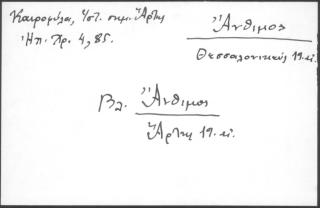 Καιρομύλα, Ἱστ. σημ. Ἄρτης
Ἠπ. Ἡμ. 4, 85.
Ἄνθιμος
Θεσσαλονικεύς 19. αἰ.
Βλ. Ἄνθιμος
Ἄρτης 19. αἰ.